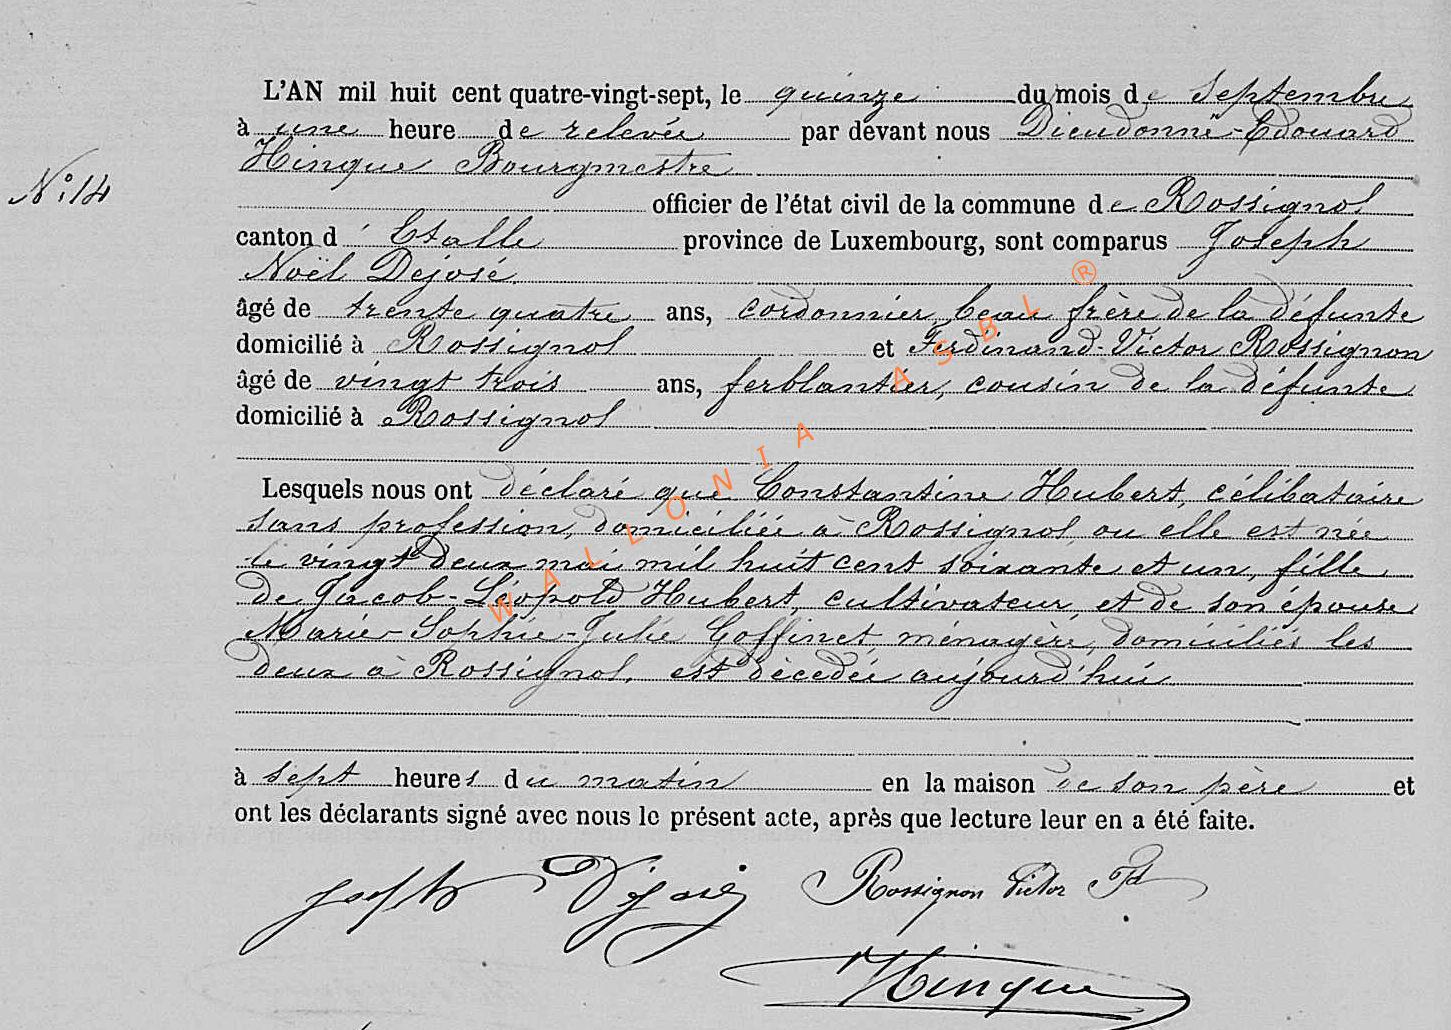 L'AN mil huit cent quatre-vingt-sept, le quinze du mois de Septembre
à une heure de relevée par devant nous Dieudonné-Edouard
Hinque Bourgmestre
N° 14
officier de l'état civil de la commune de Rossignol
canton d'Etalle province de Luxembourg, sont comparus Joseph
Noël Dejosé
âgé de trente quatre ans, cordonnier, beau frère de la défunte
domicilié à Rossignol et Ferdinand-Victor Rossignon
âgé de vingt trois ans, ferblantier, cousin de la défunte
domicilié à Rossignol
Lesquels nous ont déclaré que Constantine Hubert, célibataire
sans profession, domiciliée à Rossignol, ou elle est née
le vingt deux mai mil huit cent soixante et un, fille
de Jacob-Léopold Hubert, cultivateur, et de son épouse
Marie-Sophie-Julie Goffinet, ménagère, domiciliés les
deux à Rossignol, est décedée aujourd'hui
à sept heures du matin en la maison de son père et
ont les déclarants signé avec nous le présent acte, après que lecture leur en a été faite.
Joseph Déjosé Rossignon Victor Fd
Hinque
WALLONIA ASBL ®